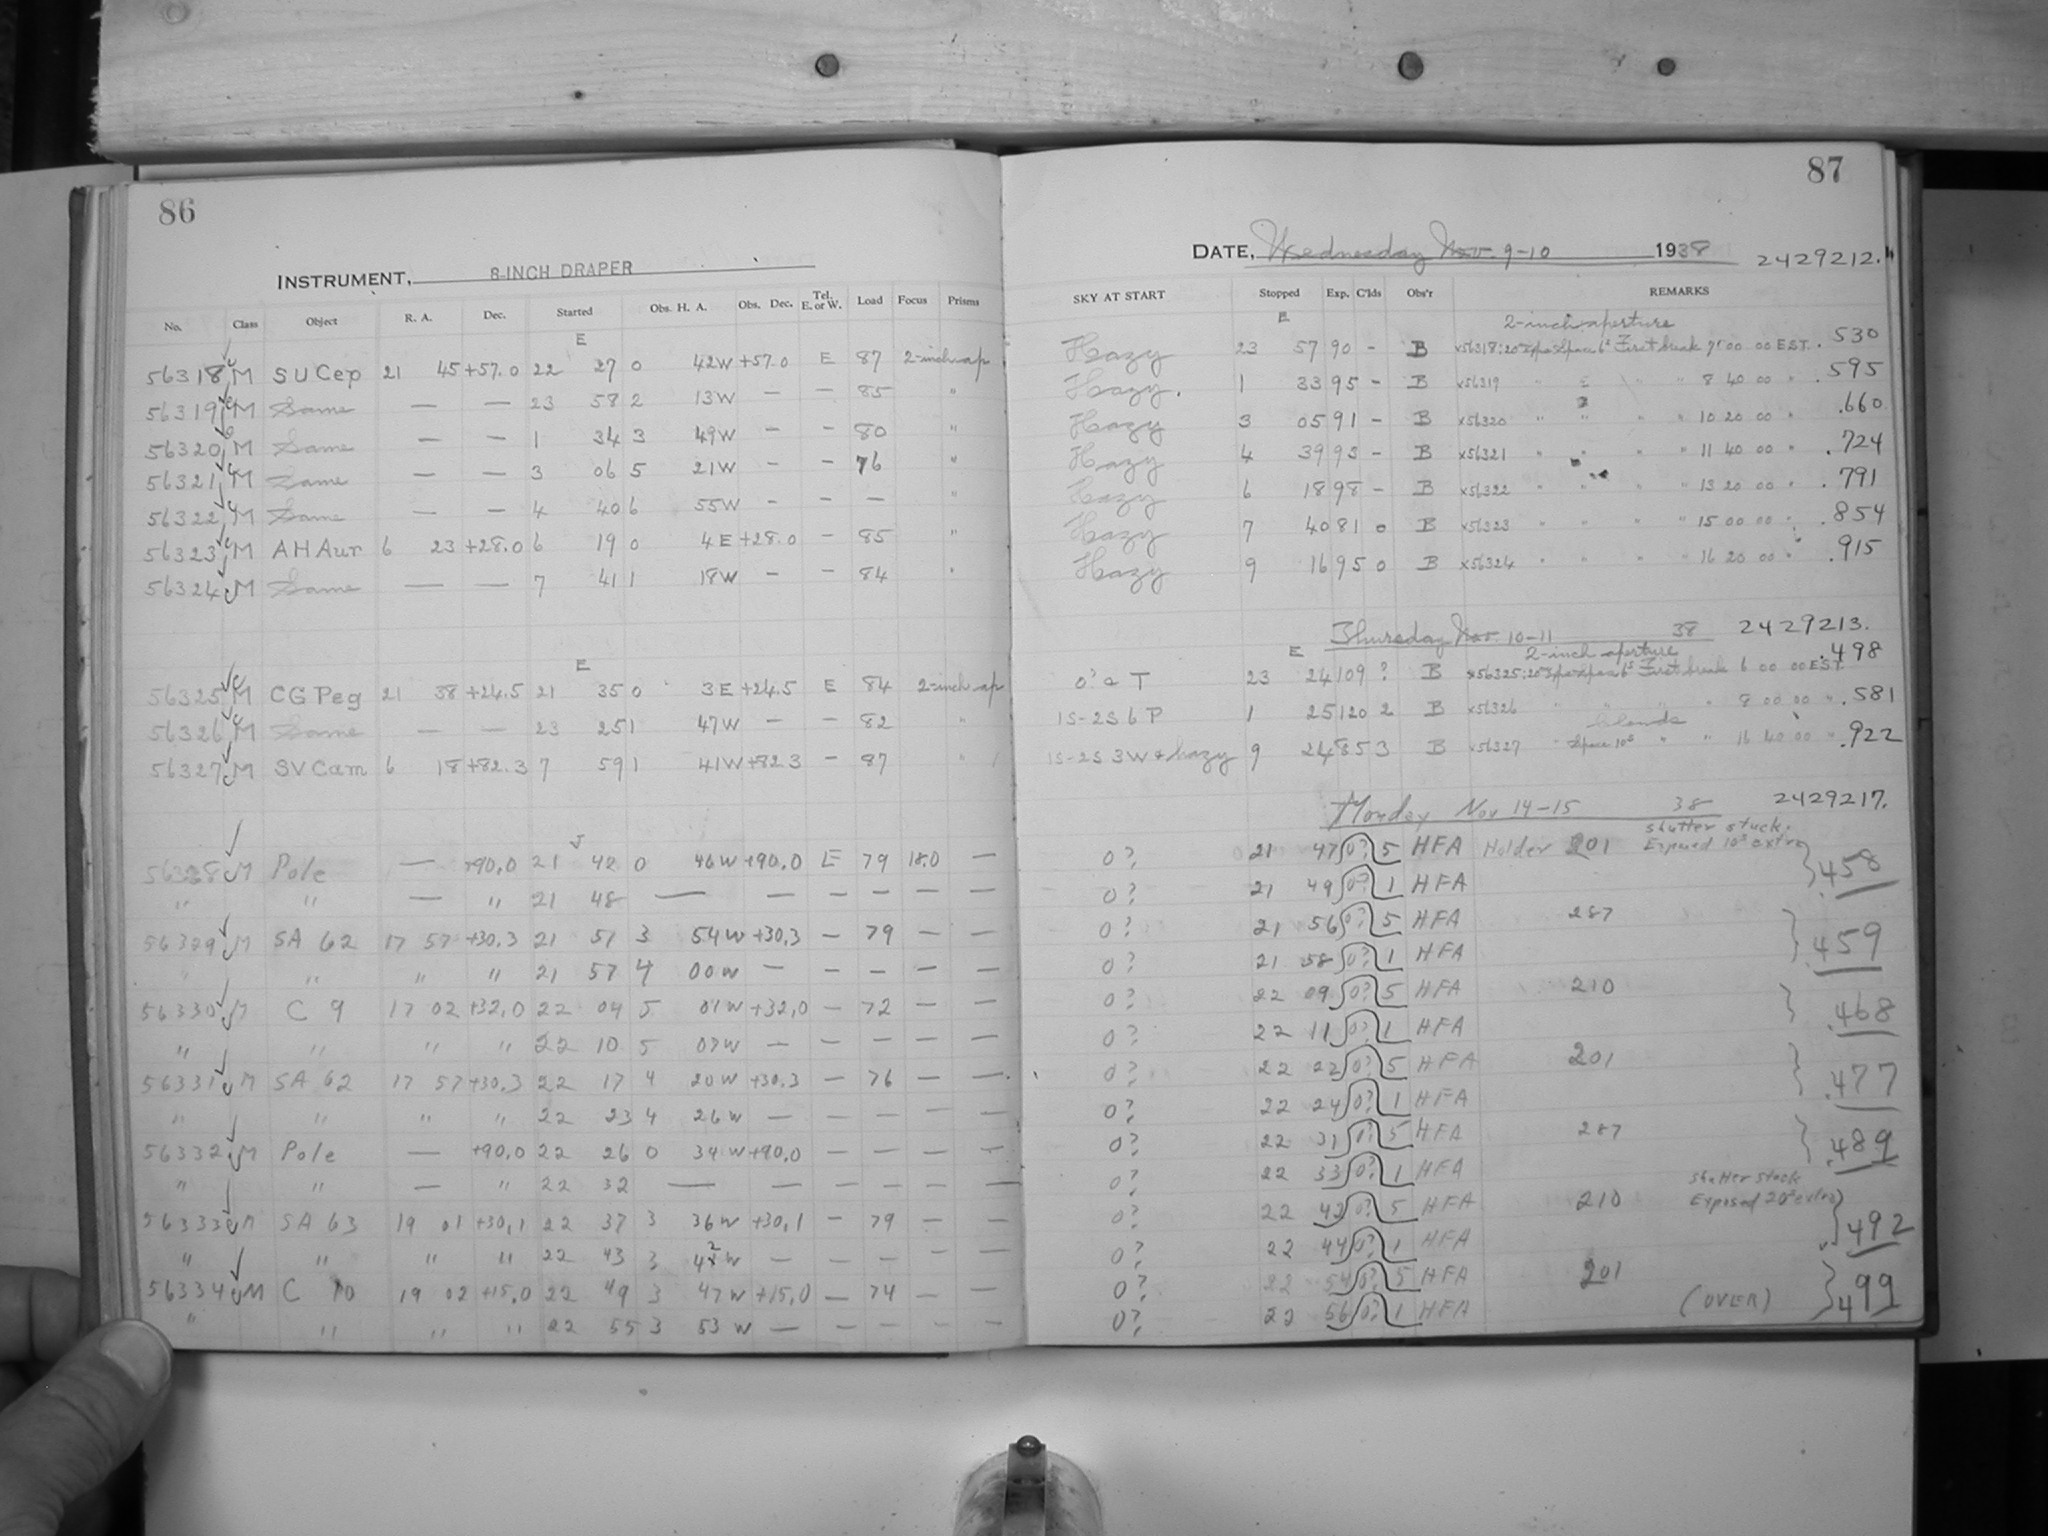 86
INSTRUMENT, 8-INCH DRAPER
No. Class Object R. A. Dec. Started Obs. H. A. Obs. Dec. Tel. E. or W. Load Focus Prisms
E
56318 M SU Cep 21 45 +57.0 22 27 0 42W +57.0 E 87 2-inch ap
56319 M Same — — 23 58 2 13W — — 85 "
56320 M Same — — 1 34 3 49W — — 80 "
56321 M Same — — 3 06 5 21W — — 76 "
56322 M Same — — 4 40 6 55W — — — "
56323 M AH Aur 6 23 +28.0 6 19 0 4E +28.0 — 85 "
56324 M Same — — 7 41 1 18W — — 84 "
E
56325 M CG Peg 21 38 +24.5 21 35 0 3E +24.5 E 84 2-inch ap
56326 M Same — — 23 25 1 47W — — 82 "
56327 M SV Cam 6 18 +82.3 7 59 1 41W +82.3 — 87 "
56328 M Pole — +90.0 21 42 0 46W +90.0 E 79 18.0 —
" " — " 21 48 — — — — — —
56329 M SA 62 17 57 +30.3 21 51 3 54W +30.3 — 79 — —
" " " " 21 57 4 00W — — — — —
56330 M C 9 17 02 +32.0 22 04 5 01W +32.0 — 72 — —
" " " " 22 10 5 07W — — — — —
56331 M SA 62 17 57 +30.3 22 17 4 20W +30.3 — 76 — —
" " " " 22 23 4 26W — — — — —
56332 M Pole — +90.0 22 26 0 34W +90.0 — — — —
" " — " 22 32 — — — — — —
56333 M SA 63 19 01 +30.1 22 37 3 36W +30.1 — 79 — —
" " " " 22 43 3 42W — — — — —
56334 M C 10 19 02 +15.0 22 49 3 47W +15.0 — 74 — —
" " " " 22 55 3 53W — — — — —
87
DATE, Wednesday Nov. 9-10 1938 2429212.
SKY AT START Stopped Exp. C'lds Obs'r REMARKS
E 2-inch aperture
Hazy 23 57 90 - B x56318: 20s Space 6s First break 7 00 00 EST .530
Hazy. 1 33 95 - B x56319 " " " " 8 40 00 " .595
Hazy 3 05 91 - B x56320 " " " " 10 20 00 " .660
Hazy 4 39 93 - B x56321 " " " " 11 40 00 " .724
Hazy 6 18 98 - B x56322 " " " " 13 20 00 " .791
Hazy 7 40 81 0 B x56323 " " " " 15 00 00 " .854
Hazy 9 16 95 0 B x56324 " " " " 16 20 00 " .915
Thursday Nov. 10-11 38 2429213.
E 2-inch aperture .498
0? a T 23 24 109 ? B x56325: 20s Space 6s First break 6 00 00 EST
1S-2S 6 P 1 25 120 2 B x56326 " " " " 8 00 00 " .581
clouds
1S-2S 3W + hazy 9 24 85 3 B x56327 " Space 10s " " 16 40 00 " .922
Monday Nov 14-15 38 2429217.
shutter stuck.
0? 21 47 0? 5 HFA Holder 201 Exposed 10s extra .458
0? 21 49 0? 1 HFA
0? 21 56 0? 5 HFA 287 .459
0? 21 58 0? 1 HFA
0? 22 09 0? 5 HFA 210 .468
0? 22 11 0? 1 HFA
0? 22 22 0? 5 HFA 201 .477
0? 22 24 0? 1 HFA
0? 22 31 0? 5 HFA 287 .489
0? 22 33 0? 1 HFA
shutter stuck
0? 22 42 0? 5 HFA 210 Exposed 20s extra .492
0? 22 44 0? 1 HFA
0? 22 54 0? 5 HFA 201 .499
0? 22 56 0? 1 HFA (OVER)